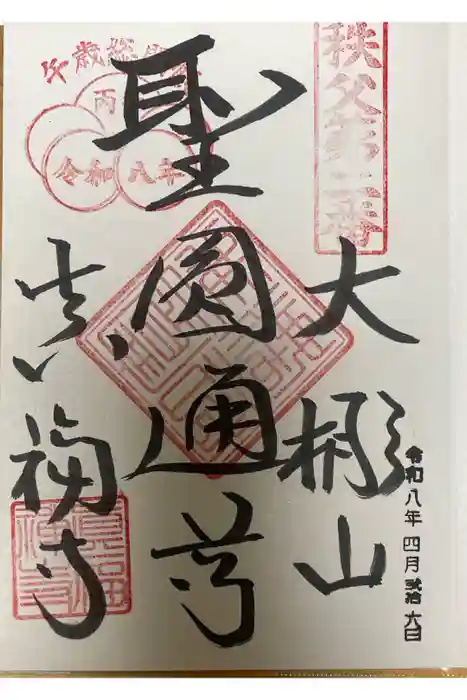 秩父第二番
大棚山
令和八年 四月 弐拾六日
聖圓通尊
午歳総開帳
丙午
令和 八年
真福寺